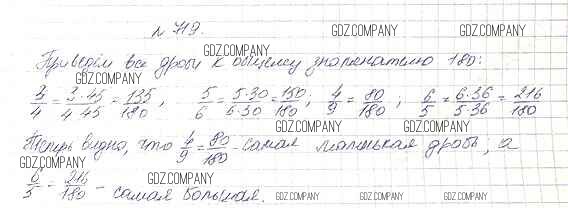 № 719.
GDZ.COMPANY GDZ.COMPANY
GDZ.COMPANY
Приведём все дроби к общему знаменателю 180:
GDZ.COMPANY
3/4 = 3·45/4·45 = 135/180, 5/6 = 5·30/6·30 = 150/180; 4/9 = 80/180; 6/5 = 6·36/5·36 = 216/180
GDZ.COMPANY GDZ.COMPANY
Теперь видно, что 4/9 = 80/180 - самая маленькая дробь, а
GDZ.COMPANY
6/5 = 216/180 - самая большая.
GDZ.COMPANY
GDZ.COMPANY GDZ.COMPANY GDZ.COMPANY